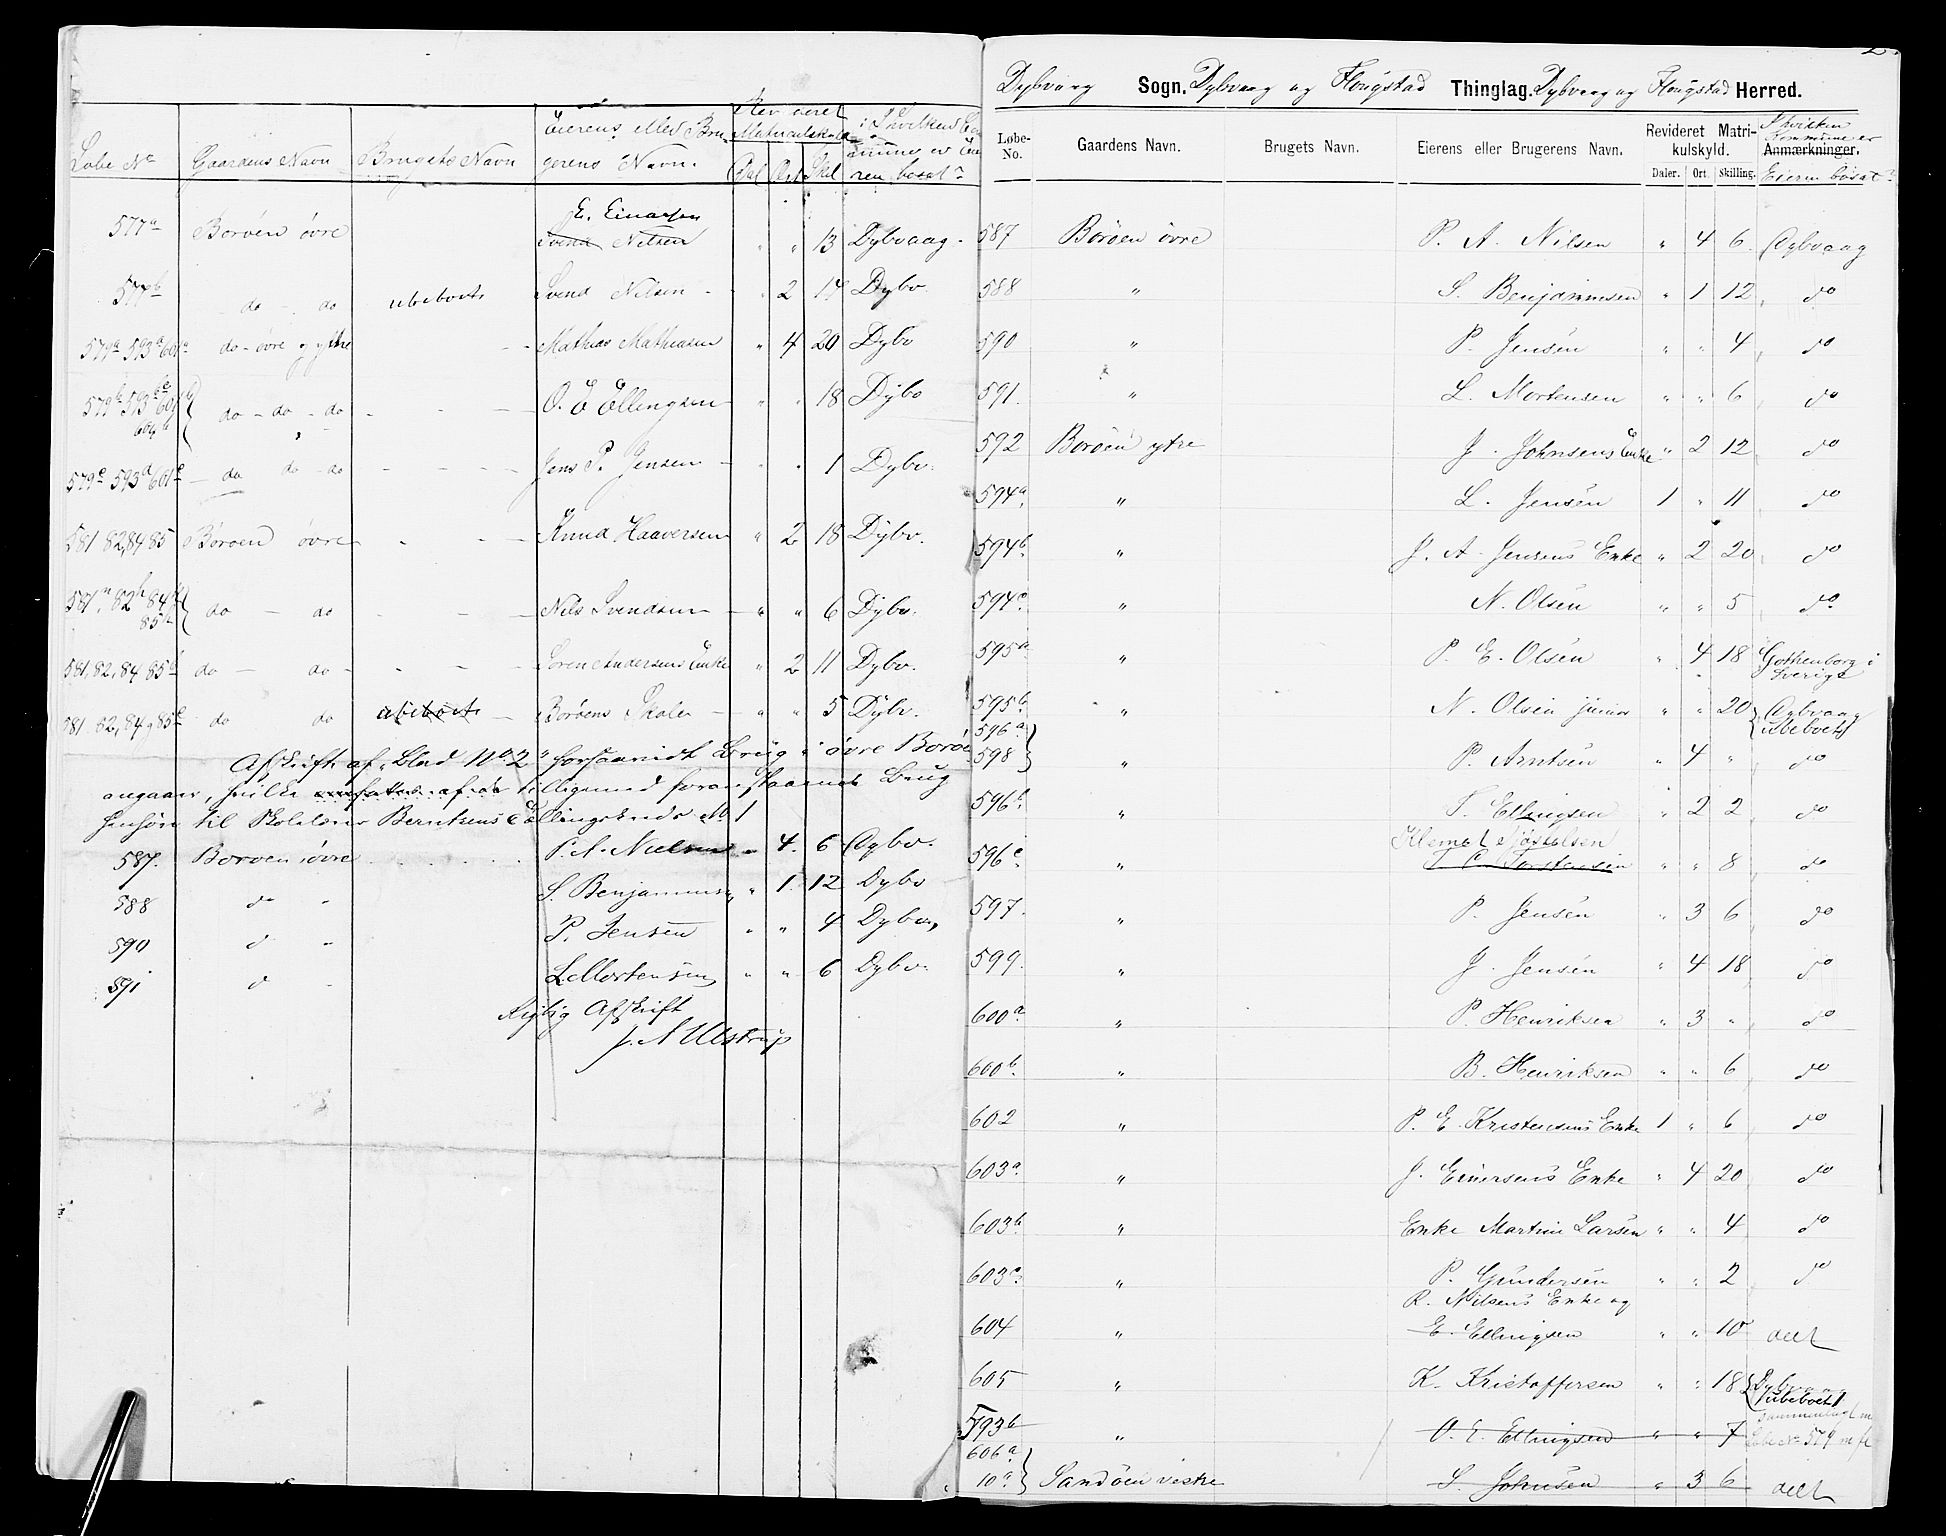 Løbe No Gaardens Navn Brugets Navn Eierens eller Bru- Rev. Matriculskyld
gerens Navn. Dal Ort Skil
577a Borøen øvre E. Einarsen
Svend Nilsen " " 13 Dybvaag.
577b do - do ubeboet Svend Nilsen " 2 14 Dybv.
579a 593a 601a do - øvre og ytre Mathias Mathiasen " 4 20 Dybv
579b 593b 601b do - do - do O. E Ellingsen " " 18 Dybv
579c 593d 601c do do - do Jens P. Jensen " " 1 Dybv.
581 82,84 85 Borøen øvre Knud Haaversen " 2 18 Dybv.
581a, 82b 84
85 do - do Nils Svendsen " " 6 Dybv.
581, 82, 84 85 do - do Søren Andersens Enke " 2 11 Dybv.
581, 82, 84, 85 do do ubeboet Borøens Skole " " 5 Dybv.
Afskrift af Blad No 2 forsaavidt Brug i øvre Borøen
angaaer, hvilke tilligemed foranstaaende Brug
henhøre til Skolelærer Berntsens Tællingskreds No 1
587. Borøen øvre P. A. Nielsen " 4. 6 Dybv.
588 do " S. Benjaminsen " 1. 12 Dybv
590 d " P. Jensen " " 4 Dybv.
591 d " L. Mortensen " " 6 Dybv.
Rigtig Afskrift
J. A Ulstrup
Dybvaag Sogn. Dybvaag og Flougstad Thinglag. Dybvaag og Flougstad Herred.
Løbe-No. Gaardens Navn. Brugets Navn. Eierens eller Brugerens Navn. Revideret Matri-kulskyld. I hvilken Kommune er Anmærkninger. Eieren bosat?
Daler. Ort. Skilling.
587 Borøen øvre P. A. Nilsen " 4 6 Dybvaag
588 " S. Benjaminsen " 1 12 do
590 " P. Jensen " " 4 do
591. " L. Mortensen " " 6 do
592 Borøen ytre J. Johnsens Enke " 2 12 do
594a. " L. Jensen 1 " 11 do
594b. " J. A. Jensens Enke " 2 20 do
594c. " N. Olsen " " 5 do
595a " P. E. Olsen " 4 18 Gothenborg i
Sverige
595b. " N. Olsen junior " " 20 Dybvaag
ubeboet
596a
598 " P. Arntsen " 4 " do
596b. " T. Ellingsen " 2 2 do
596c. " Klemet
T. C. Torstensen " " 8 do
597. " P. Jensen " 3 6 do
599. " J. Jensen " 4 18 do
600a. " P. Henriksen " 3 " do
600b. " B. Henriksen " " 6 do
602 " P. E. Kristensens Enke 1 " 6 do
603a. " J. Einersens Enke " 4 20 do
603b " Enke Martine Larsen " " 4 do
603c. " P. Gundersen " " 2 do
R. Nilsens Enke og
604 " E. Ellingsen " " 10 deelt
605 " K. Kristoffersen " " 18 Dybvaag
ubeboet
593b " O. E. Ellingsen " " 7 sammenlagt m
Løbe No 579 m fl
606a.
10a. Sandøen vestre S. Johnsen " 3 6 deelt